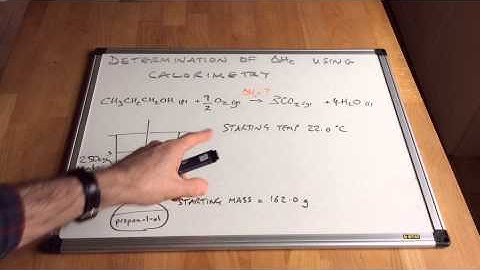 DETERMINATION OF ΔHc USING
CALORIMETRY
ΔHc?
CH3CH2CH2OH (l) + 9/2 O2 (g) → 3CO2 (g) + 4H2O (l)
STARTING TEMP 22.0 °C
250
STARTING MASS = 162.0 g
propan-1-ol